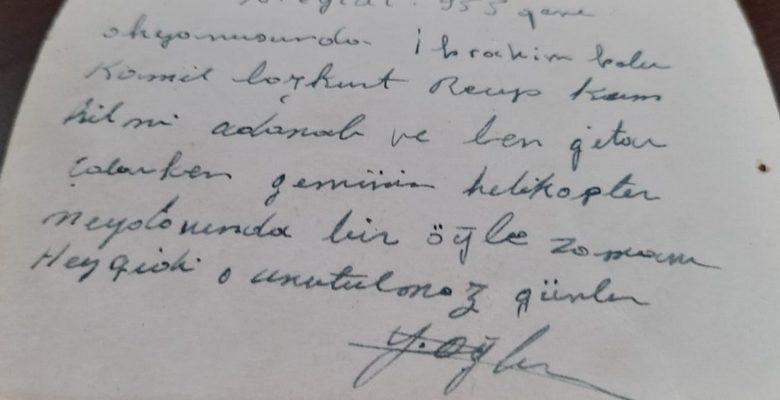 955 gene
okyanusunda İbrahim
Kamil bozkurt Recep
hilmi adanalı ve ben gitar
çalarken geminin helikopter
meydanında bir öğle zamanı
Hey gidi o unutulmaz günler
Y. Oğl